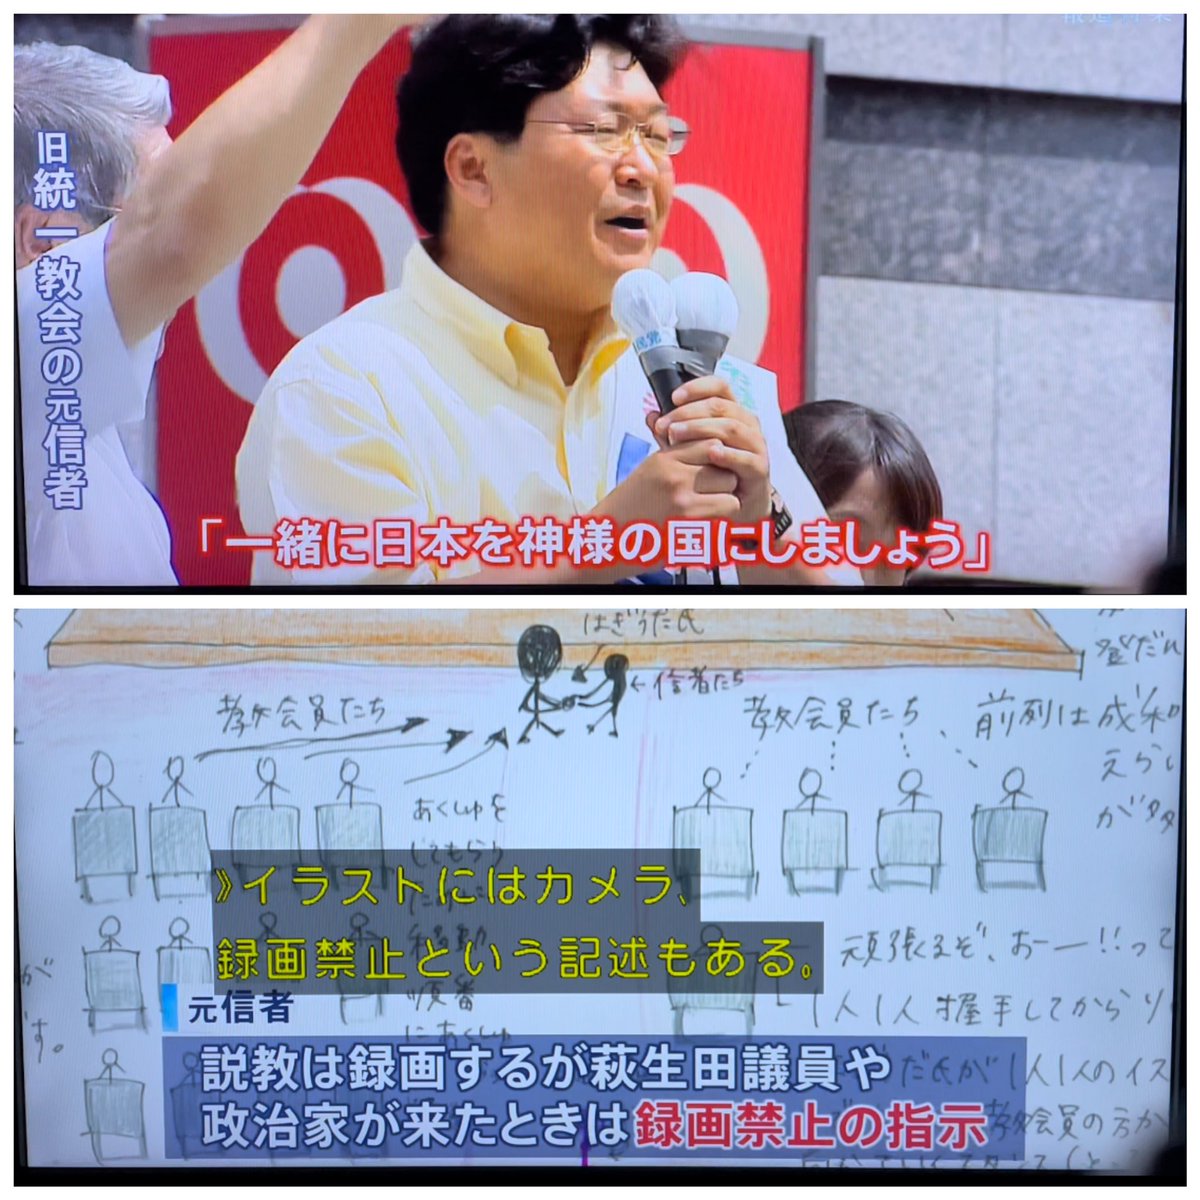 旧統一教会の元信者
民党
「一緒に日本を神様の国にしましょう」
はぎうだ氏
←信者たち
教会員たち
教会員たち
前列は成和
えらい
が多
あくしゅを
してもらう
移動
順番
にあくしゅ
》イラストにはカメラ、
録画禁止という記述もある。
頑張るぞ、おー!!って
1人1人握手してからリ
が
す。
元信者
説教は録画するが萩生田議員や
政治家が来たときは録画禁止の指示
だ氏が1人1人のイス
教会員の方か